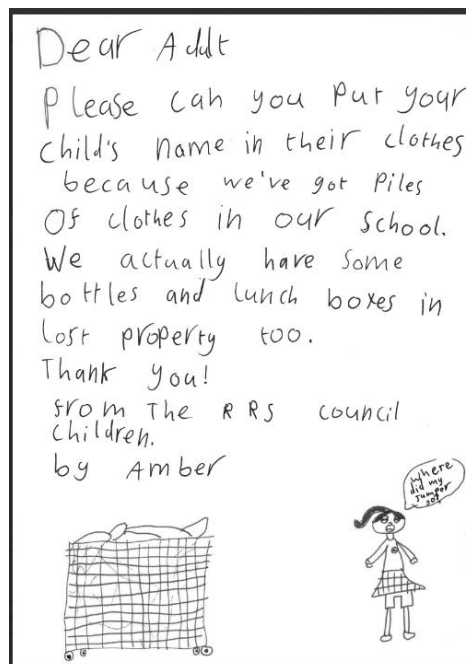 Dear Adult
Please can you put your
child's name in their clothes
because we've got Piles
Of clothes in our school.
We actually have some
bottles and lunch boxes in
lost property too.
Thank you!
from The RRS council
children.
by Amber
where
did my
jumper
go?